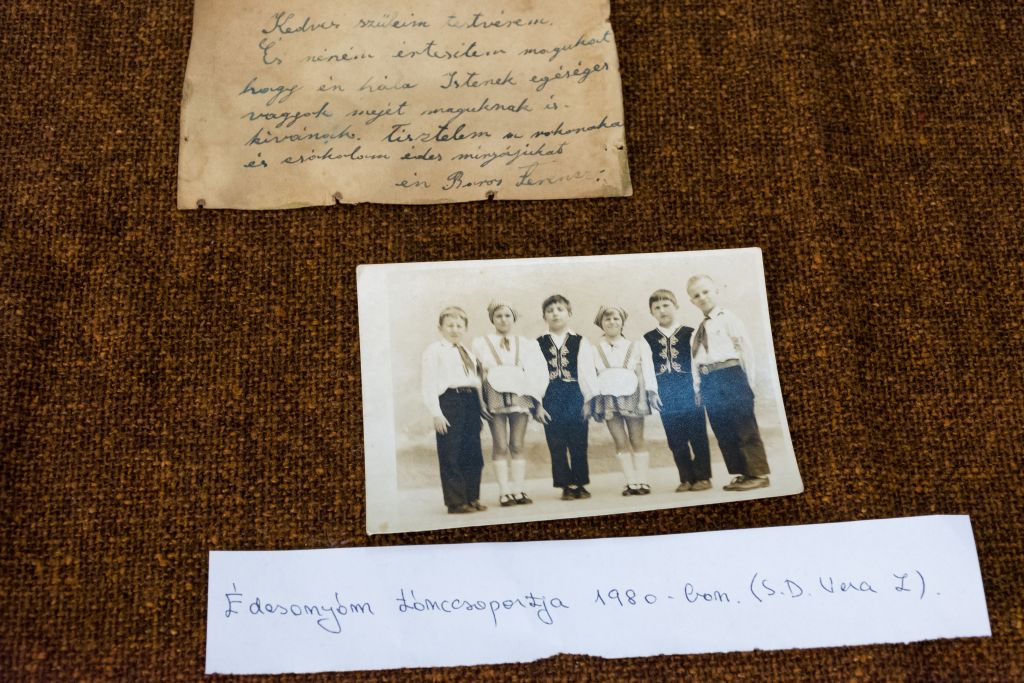 Kedves szüleim testvérem.
És néném értesitem magukat
hogy én hála Istenek egéséges
vagyok mejét maguknak is-
kivánok. Tisztelem a rokonaka
és csókolom édes mindájukat
én Boros Ferencz.
Édesanyám tánccsoportja 1980-ban. (S.D. Vera Z).